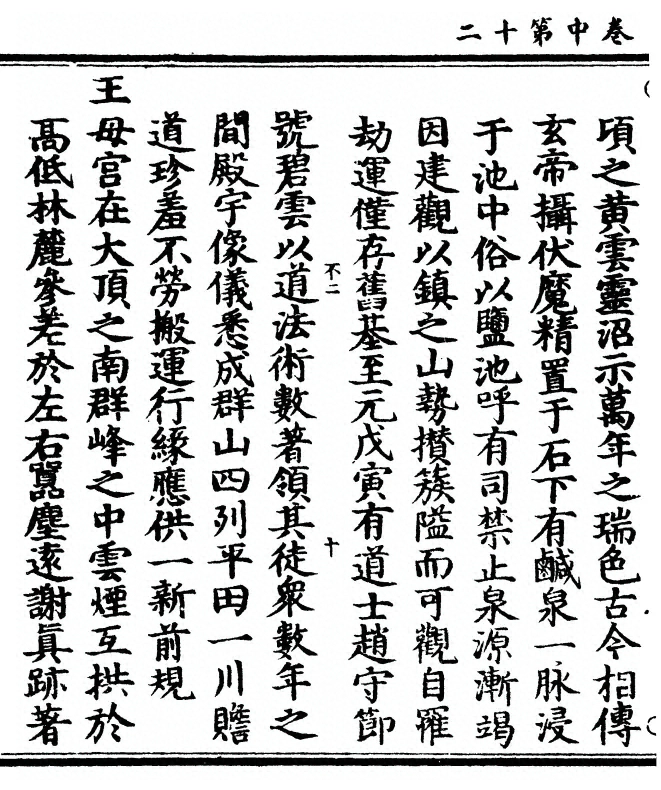 卷中第十二
頃之黄雲靈沼示萬年之瑞色古今相傳
玄帝攝伏魔精置于石下有鹹泉一脉浸
于池中俗以鹽池呼有司禁止泉源漸竭
因建觀以鎮之山勢攅簇隘而可觀自罹
劫運僅存舊基至元戊寅有道士趙守節
不二
十
號碧雲以道法術數著領其徒衆數年之
間殿宇像儀悉成群山四列平田一川贍
道珍羞不勞搬運行緣應供一新前規
王母宫在大頂之南群峰之中雲煙互拱於
高低林麓參差於左右囂塵遠謝眞跡著